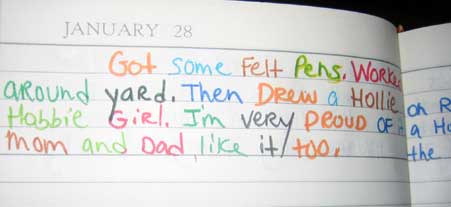 JANUARY 28
Got some Felt Pens. Worke
around yard. Then Drew a Hollie
Hobbie Girl. I'm very PROUD OF it
Mom and Dad like it too.
on R
a Ho
the